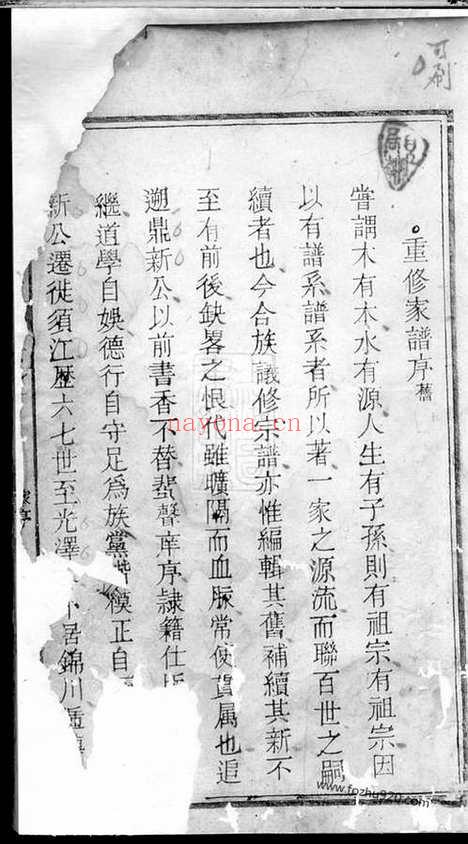 可刷
重修家譜序舊
嘗謂木有本水有源人生有子孫則有祖宗有祖宗因
以有譜系譜系者所以著一家之源流而聯百世之嗣
續者也今合族議修宗譜亦惟編輯其舊補續其新不
至有前後缺畧之恨代雖曠隔而血脉常使貫属也追
遡鼎新公以前書香不替蜚聲庠序隷籍仕版
繼道學自娛德行自守足爲族黨 模正自
新公遷徙須江歷六七世至光澤 居錦川
nayona.cn
www.fozhu920.com